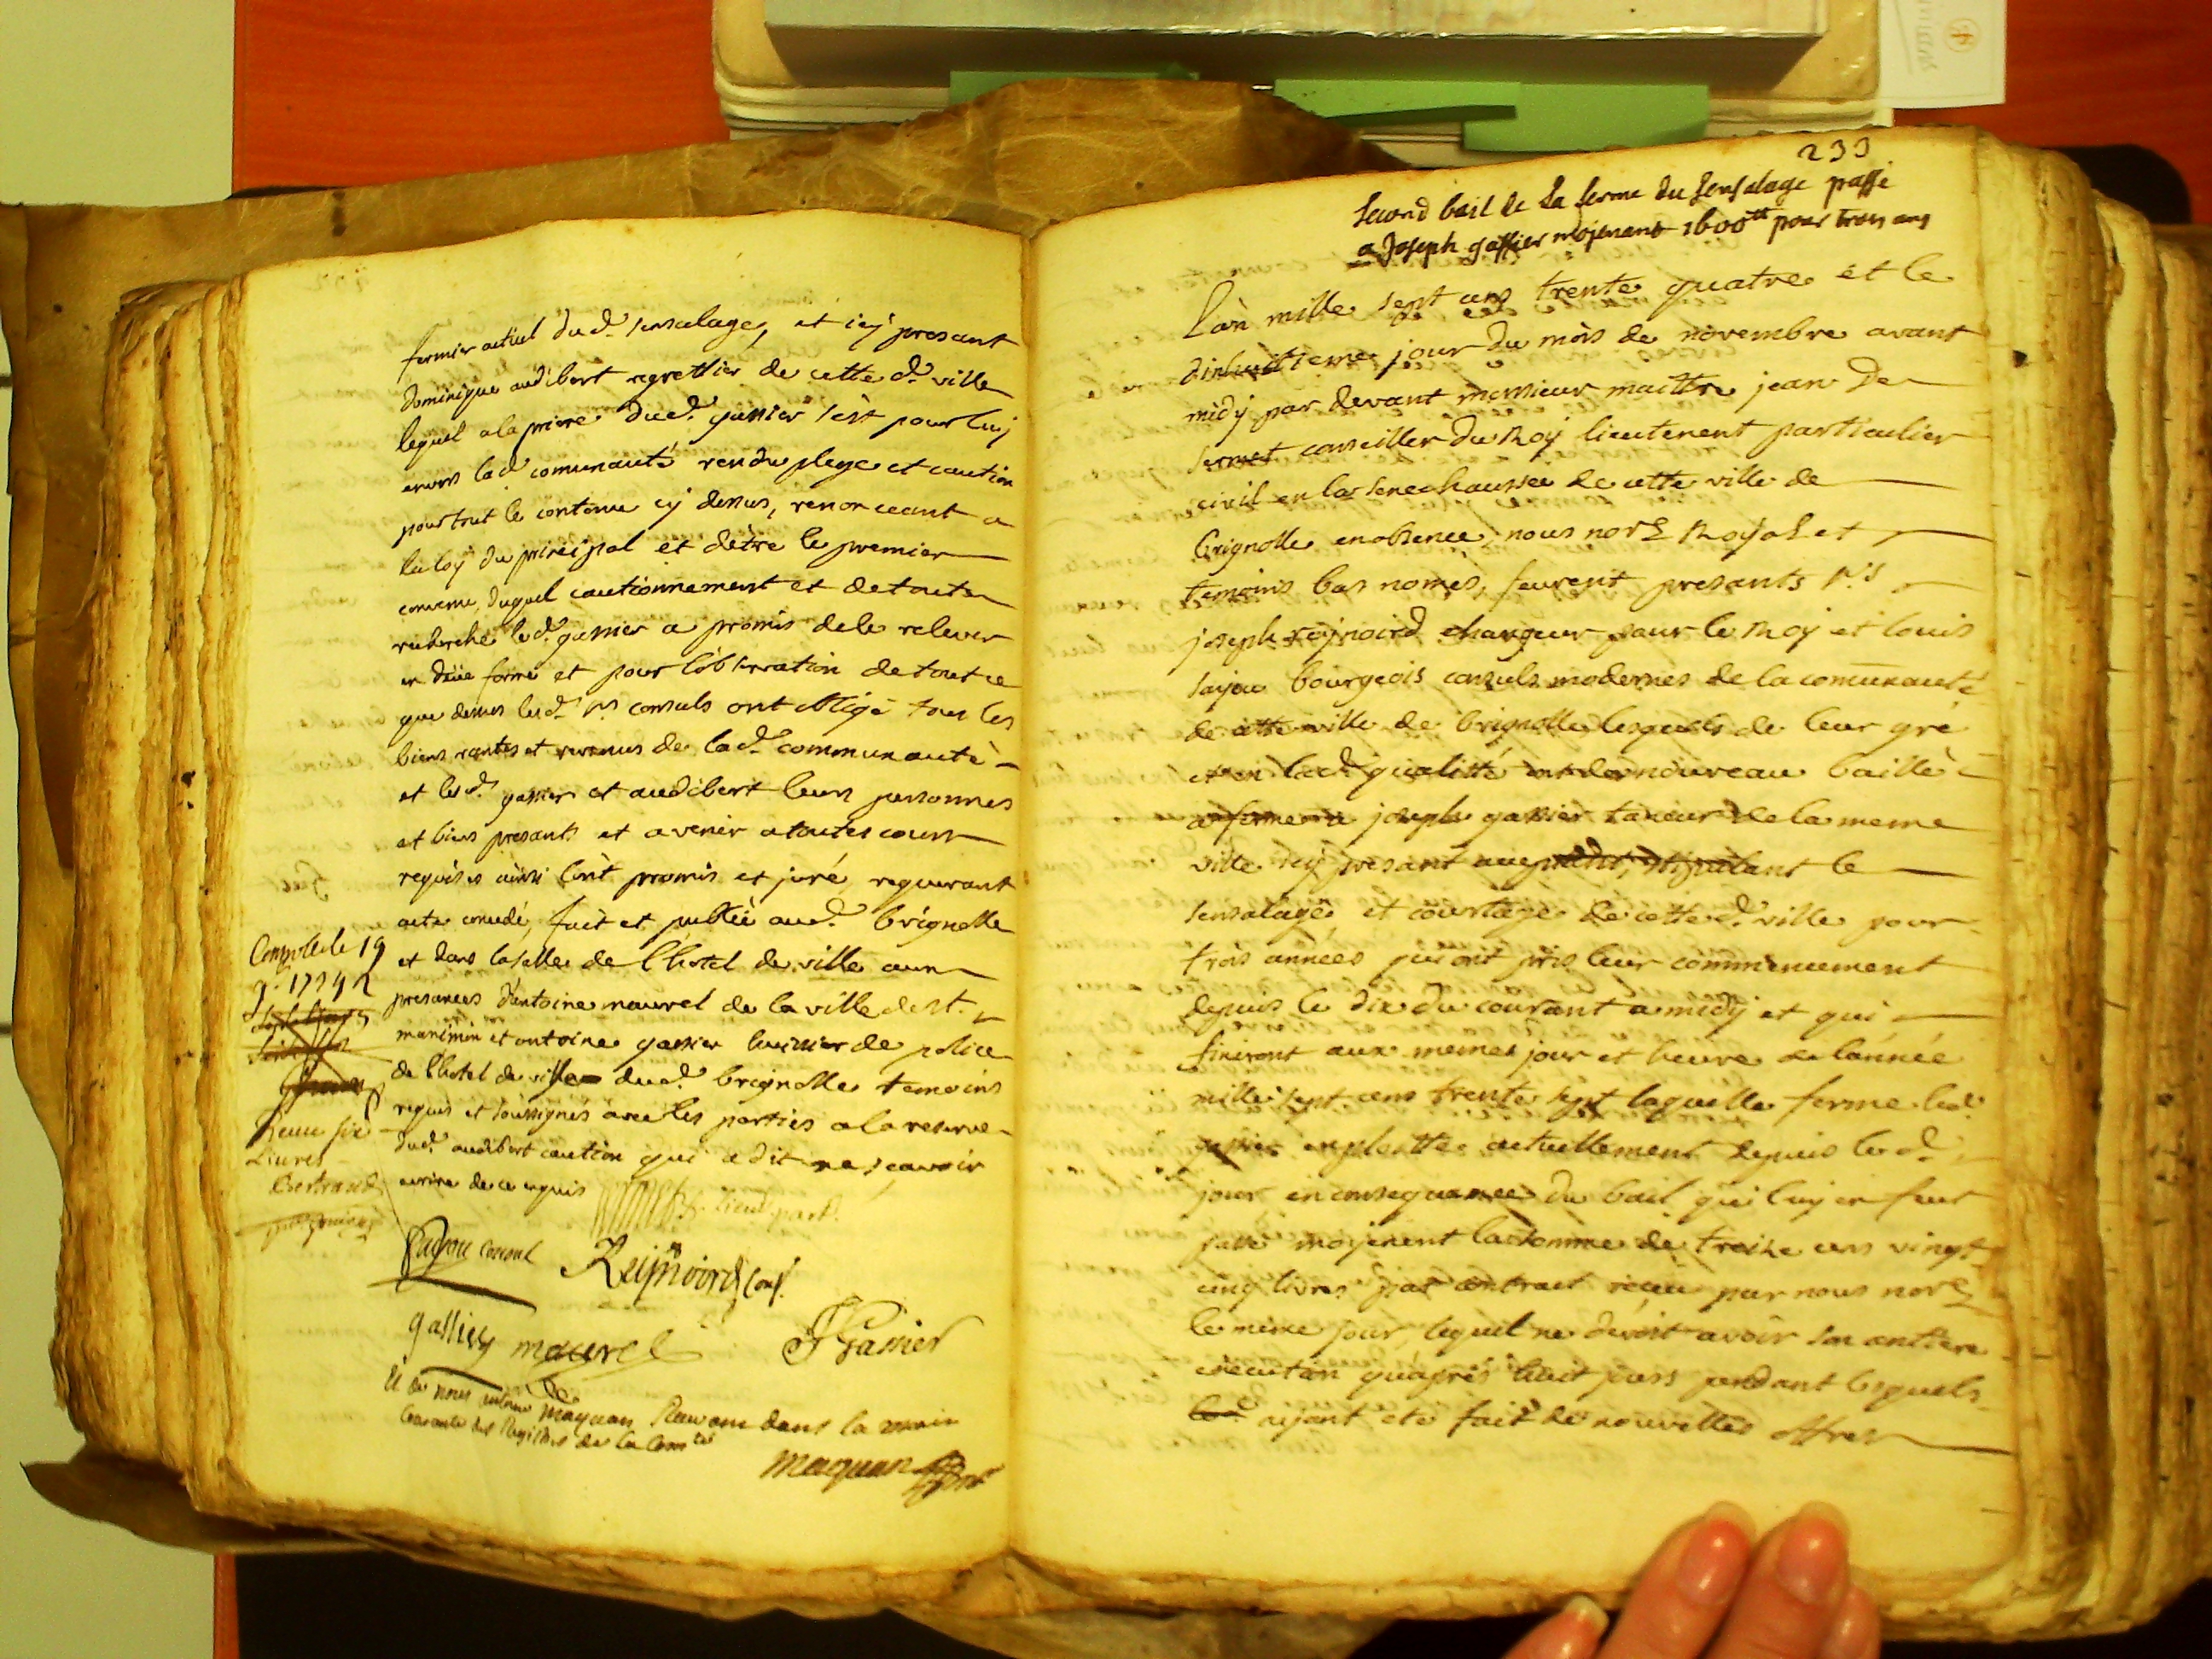 fermier actuel dud. sensalage, et icy presant
dominique audibert regrettier de cette d. ville
lequel a la priere dud. gassier s'est pour luy
envers lad comunauté rendu plege et caution
pour tout le contenu cy dessus, renonceant a
la loy du principal et d'etre le premier
convenu, duquel cautionnement et de toute
recherche led. gassier a promis de le relever
en düe forme et pour l'observation de tout ce
que dessus lesd. srs consuls ont obligé tous les
biens rentes et revenus de lad. communauté
et lesd. gassier et audibert leurs personnes
et biens presants et avenir a toutes cours
requises ainsi l'ont promis et juré, requerant
acte concedé, fait et publié aud. brignolle
et dans la salle de l'hotel de ville aux
presances d'antoine maurel de la ville de st.
maximin et antoine gassier huissier de police
de l'hotel de ville dud. brignolle temoins
requis et soussignés avec les parties a la reserve
dud. audibert caution qui a dit ne scavoir
ecrire de ce enquis
lieut. part.
consul Reijnoird cons.
gassier maurel J Gassier
Et de nous
maquan
Controllé le 19
Livres
Bertrand
233
Second bail de la ferme du sensalage passé
a Joseph gassier mojenant 1600tt pour trois ans
L'an mille sept cens trente quatre et le
dixhuitieme jour du mois de novembre avant
midy par devant monsieur maittre jean de
sermet conseiller du Roy lieutenent particulier
civil en la senechaussée de cette ville de
brignolle en absence, nous nore Royal et
temoins bas només, feurent presants srs
joseph reynoird chargeur pour le Roy et louis
bourgeois consuls modernes de la comunauté
de cette ville de brignolle lesquels de leur gré
et en lad. qualitté ont de nouveau baillé
a ferme a joseph gassier taxeur de la meme
ville icy presant stipulant le
sensalage et courtage de cette d. ville pour
trois années qui ont pris leur commencement
depuis le dix du courant a midy et qui
finiront aux memes jour et heure de l'année
mille sept cens trente sept laquelle ferme led.
gassier exploitte actuellement depuis led.
jour en consequance du bail qui luy en feut
passé mojenent la somme de treize cens vingt
cinq livres par contract receu par nous nore
le meme jour, lequel ne devoit avoir son antiere
execution qu'apres huit jours pendant lesquels
ayant eté fait de nouvelles offres